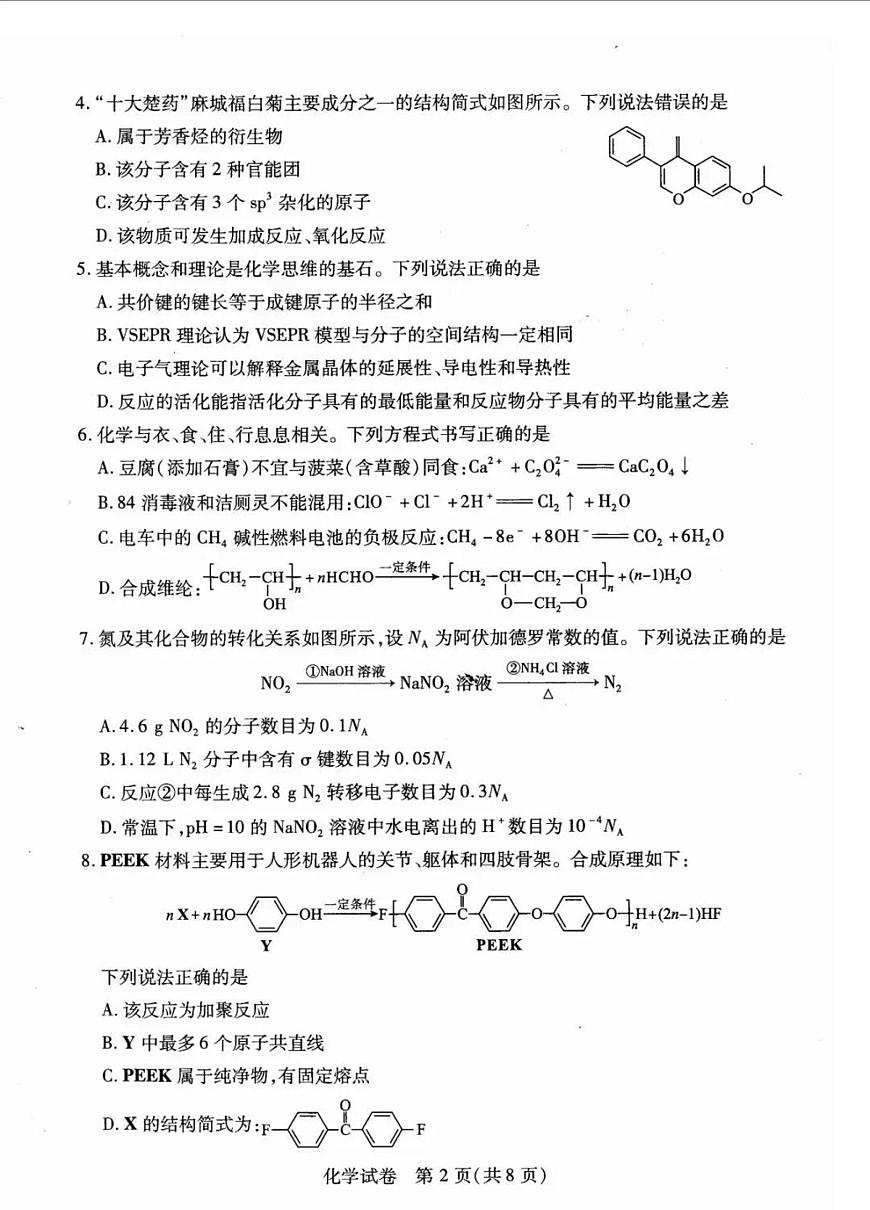 4.“十大楚药”麻城福白菊主要成分之一的结构简式如图所示。下列说法错误的是
A.属于芳香烃的衍生物
B.该分子含有2种官能团
C.该分子含有3个 sp³ 杂化的原子
D.该物质可发生加成反应、氧化反应
O
O
5.基本概念和理论是化学思维的基石。下列说法正确的是
A.共价键的键长等于成键原子的半径之和
B.VSEPR 理论认为 VSEPR 模型与分子的空间结构一定相同
C.电子气理论可以解释金属晶体的延展性、导电性和导热性
D.反应的活化能指活化分子具有的最低能量和反应物分子具有的平均能量之差
6.化学与衣、食、住、行息息相关。下列方程式书写正确的是
A.豆腐(添加石膏)不宜与菠菜(含草酸)同食:Ca²⁺ + C₂O₄²⁻ ══ CaC₂O₄↓
B.84 消毒液和洁厕灵不能混用:ClO⁻ + Cl⁻ + 2H⁺ ══ Cl₂↑ + H₂O
C.电车中的 CH₄ 碱性燃料电池的负极反应:CH₄ - 8e⁻ + 8OH⁻ ══ CO₂ + 6H₂O
D.合成维纶: [CH₂-CH]n + nHCHO 一定条件→ [CH₂-CH-CH₂-CH]n + (n-1)H₂O
OH O-CH₂-O
7.氮及其化合物的转化关系如图所示,设 Nᴀ 为阿伏加德罗常数的值。下列说法正确的是
NO₂ ①NaOH 溶液→ NaNO₂ 溶液 ②NH₄Cl 溶液 △→ N₂
A.4.6 g NO₂ 的分子数目为 0.1Nᴀ
B.1.12 L N₂ 分子中含有 σ 键数目为 0.05Nᴀ
C.反应②中每生成 2.8 g N₂ 转移电子数目为 0.3Nᴀ
D.常温下,pH = 10 的 NaNO₂ 溶液中水电离出的 H⁺ 数目为 10⁻⁴Nᴀ
8.PEEK 材料主要用于人形机器人的关节、躯体和四肢骨架。合成原理如下:
n X + n HO- -OH 一定条件→ F[ -C(O)- -O- -O]nH + (2n-1)HF
Y PEEK
下列说法正确的是
A.该反应为加聚反应
B.Y 中最多 6 个原子共直线
C.PEEK 属于纯净物,有固定熔点
D.X 的结构简式为: F- -C(O)- -F
化学试卷 第 2 页(共 8 页)